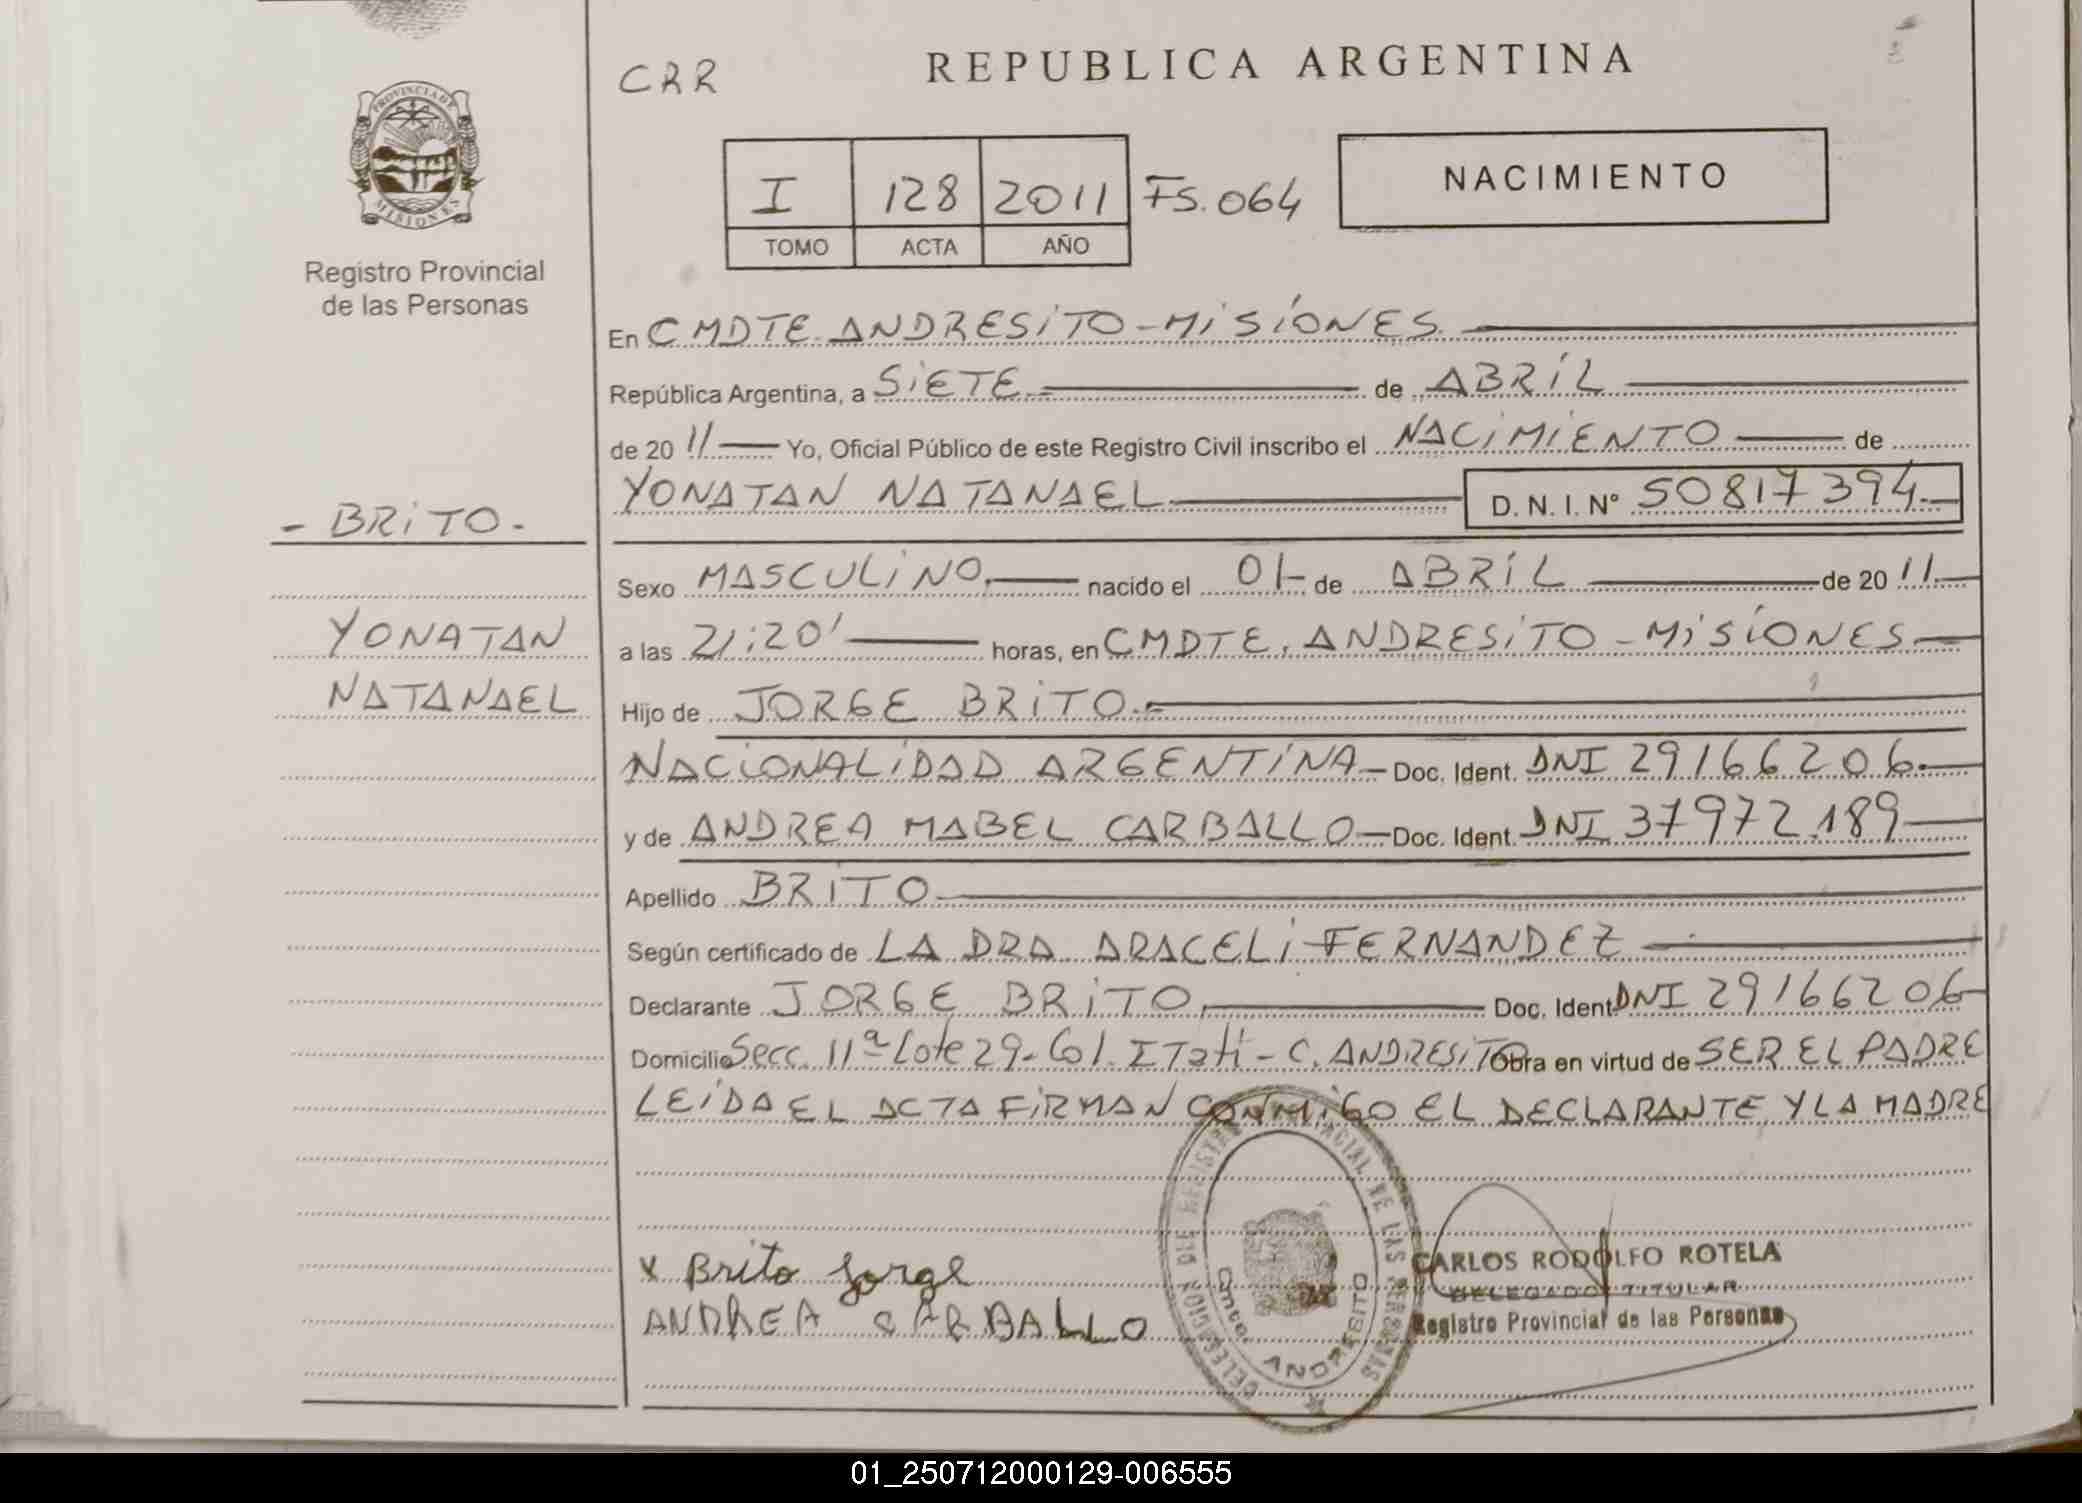 PROVINCIA DE
MISIONES
Registro Provincial
de las Personas
- BRITO -
YONATAN
NATANAEL
CRR
REPUBLICA ARGENTINA
I 128 2011 FS. 064
TOMO ACTA AÑO
NACIMIENTO
En CMDTE. ANDRESITO - MISIONES
República Argentina, a SIETE de ABRIL
de 20 11 Yo, Oficial Público de este Registro Civil inscribo el NACIMIENTO de
YONATAN NATANAEL D. N. I. Nº 50817394
Sexo MASCULINO nacido el 01 de ABRIL de 20 11
a las 21:20' horas, en CMDTE. ANDRESITO - MISIONES
Hijo de JORGE BRITO
NACIONALIDAD ARGENTINA - Doc. Ident. DNI 29166206
y de ANDREA MABEL CARBALLO - Doc. Ident. DNI 37972189
Apellido BRITO
Según certificado de LA DRA ARACELI FERNANDEZ
Declarante JORGE BRITO Doc. Ident. DNI 29166206
Domicilio Secc. 11ª Lote 29 - Col. ITati - C. ANDRESITO Obra en virtud de SER EL PADRE
LEIDA EL ACTA FIRMAN CONMIGO EL DECLARANTE Y LA MADRE
X Brito Jorge
ANDREA CARBALLO
DELEGACION REGISTRO PROVINCIAL DE LAS PERSONAS
Cmte. ANDRESITO
CARLOS RODOLFO ROTELA
DELEGADO TITULAR
Registro Provincial de las Personas
01_250712000129-006555